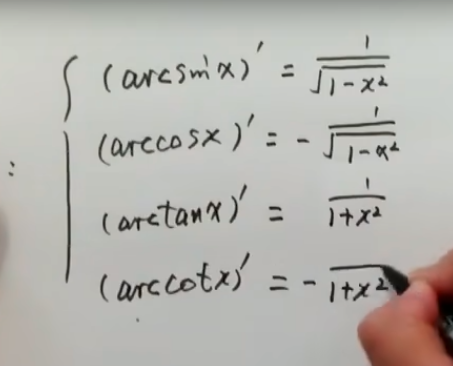 (arcsinx)' = 1/√(1-x²)
(arccosx)' = - 1/√(1-x²)
(arctanx)' = 1/(1+x²)
(arccotx)' = - /(1+x²)